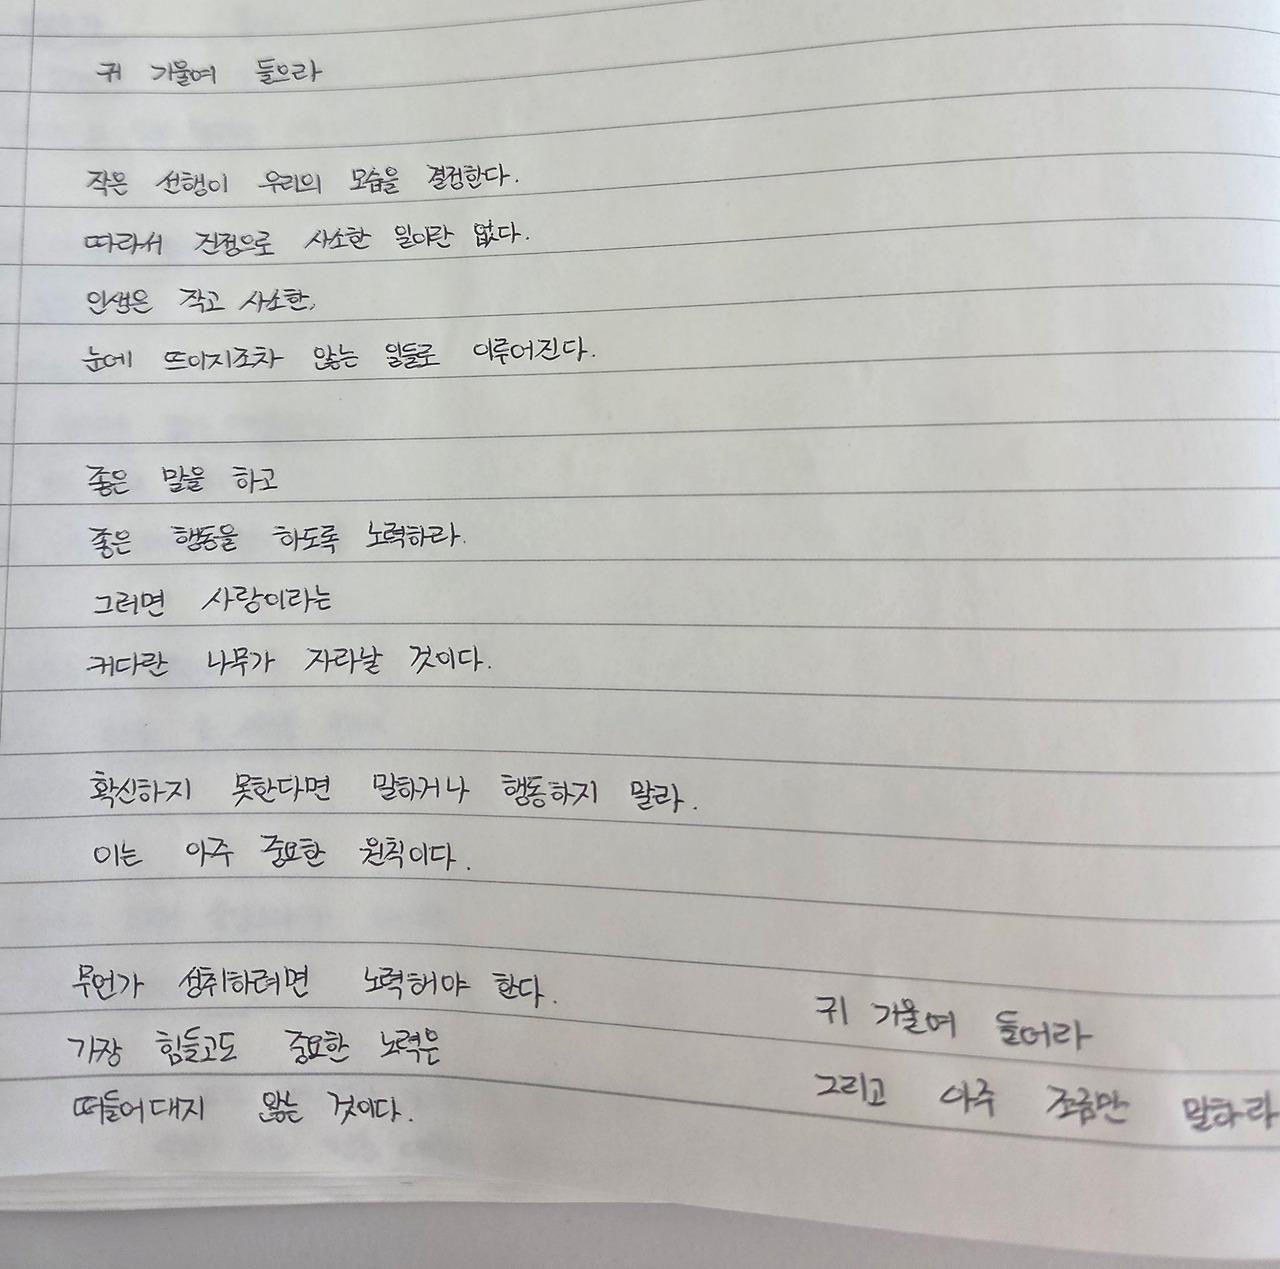 귀 기울여 들으라
작은 선행이 우리의 모습을 결정한다.
따라서 진정으로 사소한 일이란 없다.
인생은 작고 사소한,
눈에 뜨이지조차 않는 일들로 이루어진다.
좋은 말을 하고
좋은 행동을 하도록 노력하라.
그러면 사랑이라는
커다란 나무가 자라날 것이다.
확신하지 못한다면 말하거나 행동하지 말라.
이는 아주 중요한 원칙이다.
무언가 성취하려면 노력해야 한다.
가장 힘들고도 중요한 노력은
떠들어대지 않는 것이다.
귀 기울여 들어라
그리고 아주 조금만 말하라